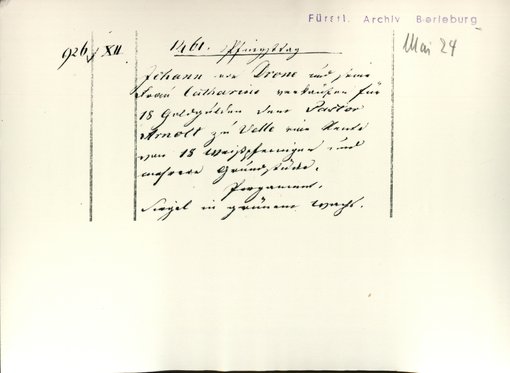 Fürstl. Archiv Berleburg
926/XII
1461. Pfingsttag
Mai 24
Johann von Drone und seine
Frau Catharina verkaufen für
18 Goldgulden dem Pastor
Arnolt zu Velle eine Rente
von 18 Weißpfennigen und
mehrere Grundstücke.
Pergament.
Siegel in grünem Wachs.